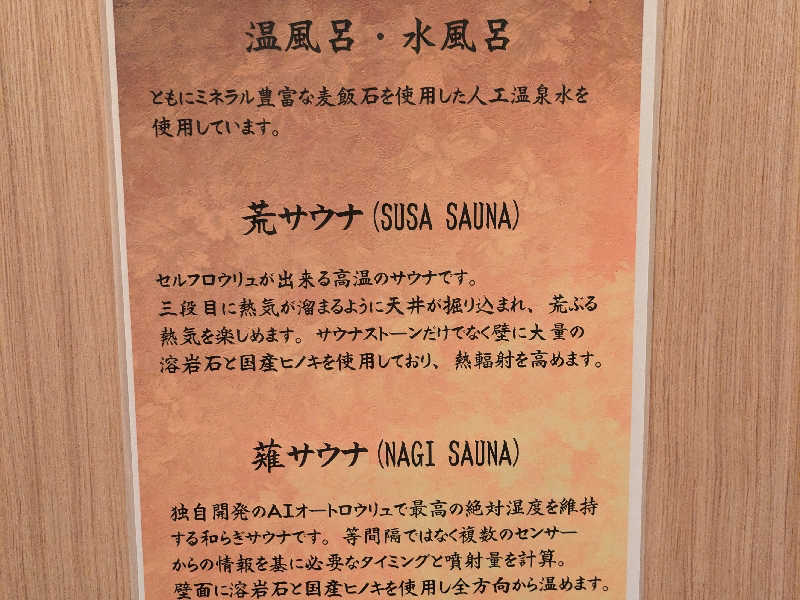 温風呂・水風呂
ともにミネラル豊富な麦飯石を使用した人工温泉水を
使用しています。
荒サウナ(SUSA SAUNA)
セルフロウリュが出来る高温のサウナです。
三段目に熱気が溜まるように天井が掘り込まれ、荒ぶる
熱気を楽しめます。サウナストーンだけでなく壁に大量の
溶岩石と国産ヒノキを使用しており、熱輻射を高めます。
薙サウナ(NAGI SAUNA)
独自開発のAIオートロウリュで最高の絶対湿度を維持
する和らぎサウナです。等間隔ではなく複数のセンサー
からの情報を基に必要なタイミングと噴射量を計算。
壁面に溶岩石と国産ヒノキを使用し全方向から温めます。